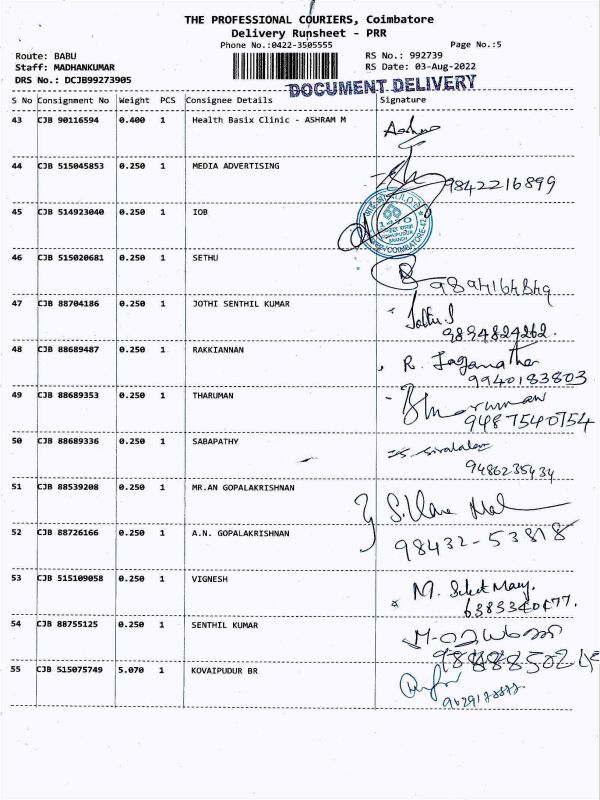 THE PROFESSIONAL COURIERS, Coimbatore
Delivery Runsheet - PRR
Phone No.:0422-3505555 Page No.:5
Route: BABU RS No.: 992739
Staff: MADHANKUMAR RS Date: 03-Aug-2022
DRS No.: DCJB99273905
DOCUMENT DELIVERY
S No Consignment No Weight PCS Consignee Details Signature
43 CJB 90116594 0.400 1 Health Basix Clinic - ASHRAM M
44 CJB 515045853 0.250 1 MEDIA ADVERTISING
9842216899
45 CJB 514923040 0.250 1 IOB
46 CJB 515020681 0.250 1 SETHU
9894164849
47 CJB 88704186 0.250 1 JOTHI SENTHIL KUMAR
9894824262.
48 CJB 88689487 0.250 1 RAKKIANNAN R. Jaganatha
9940183803
49 CJB 88689353 0.250 1 THARUMAN
9487540754
50 CJB 88689336 0.250 1 SABAPATHY
9486235434
51 CJB 88539208 0.250 1 MR.AN GOPALAKRISHNAN
52 CJB 88726166 0.250 1 A.N. GOPALAKRISHNAN
98432-53818
53 CJB 515109058 0.250 1 VIGNESH
6383340477.
54 CJB 88755125 0.250 1 SENTHIL KUMAR
55 CJB 515075749 5.070 1 KOVAIPUDUR BR